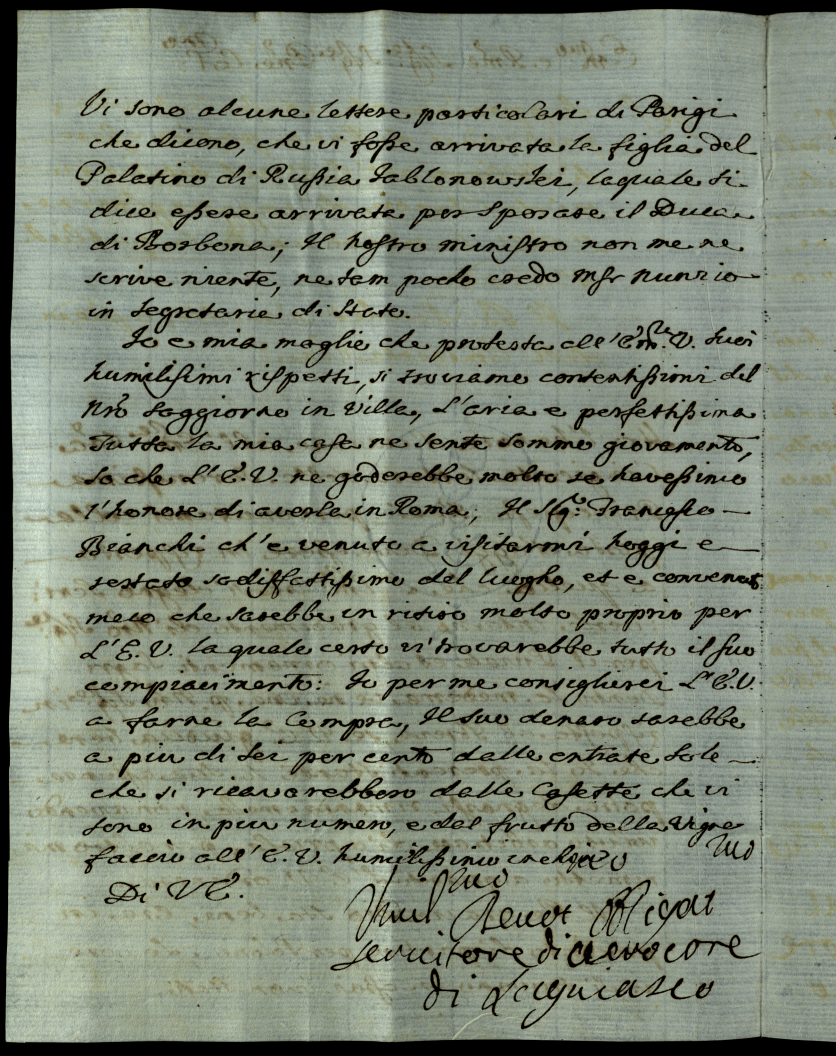 Vi sono alcune lettere particolari di Parigi
che dicono, che vi fosse arrivata la figlia del
Palatino di Russia Jablonowskei, laquale si
dice essere arrivata per sposare il Duca
di Borbona; Il nostro ministro non me ne
scrive niente, ne tam poclo credo msr nunzio
in segretarie di stato.
Io e mia moglie che protesta all'Em.ª V. suoi
humilisimi rispetti, si troviamo contentissimi del
nrõ soggiorno in villa, L'aria e perfettissima
Tutta la mia casa ne sente sommo giovamento,
so che L'E.V. ne goderebbe molto se havessimo
l'honore di averla in Roma; Il Sig.r
Bianchi ch'e venuto a visitarmi hoggi e
restato sodisfattissimo del luogho, et e convenuto
meco che sarebbe un ritiro molto proprio per
L'E.V. la quale certo vi trovarebbe tutto il suo
compiacimento: Io per me consiglierei L'E.V.
a farne la Compra, Il suo denaro sarebbe
a piu di sei per cento dalle entrate sole
che si ricavarebboro dalle Casette che vi
sono in piu numero, e dal frutto della vigna
faccio all'E.V. humilissimo
Di VE.
Hum.mo Devot.mo Obligat.mo
servitore di vero core
di Lagniasco